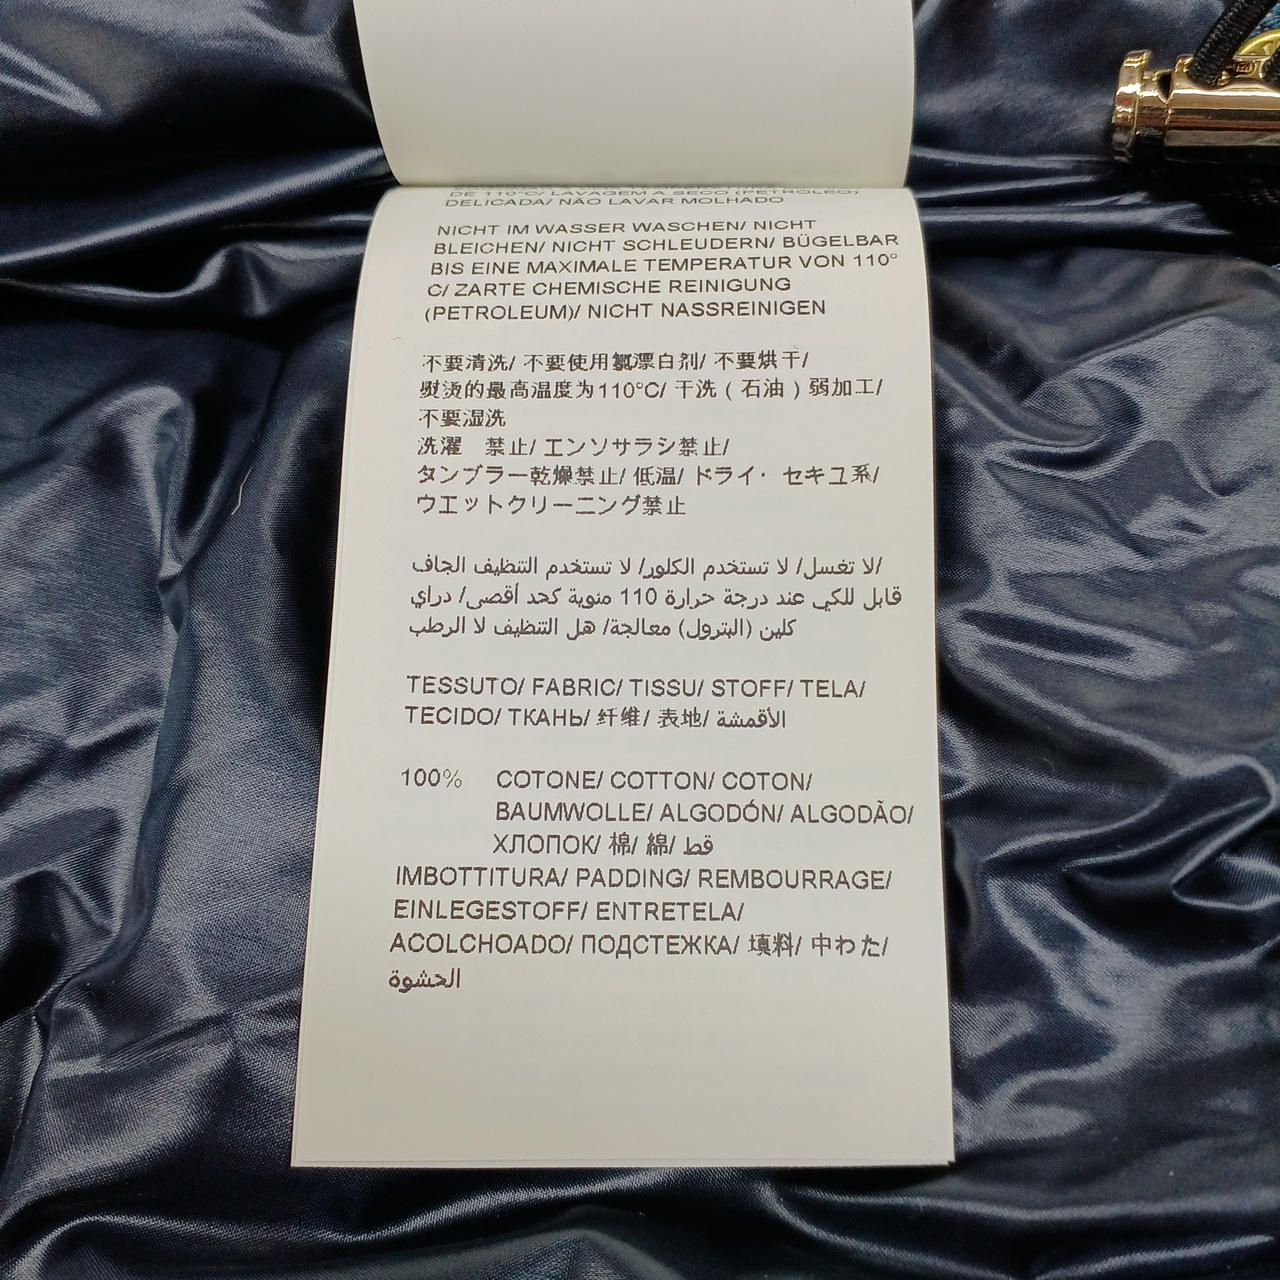 DE 110°C/ LAVAGEM A SECO (PETROLEO)
DELICADA/ NÃO LAVAR MOLHADO
NICHT IM WASSER WASCHEN/ NICHT
BLEICHEN/ NICHT SCHLEUDERN/ BÜGELBAR
BIS EINE MAXIMALE TEMPERATUR VON 110°
C/ ZARTE CHEMISCHE REINIGUNG
(PETROLEUM)/ NICHT NASSREINIGEN
不要清洗/ 不要使用氯漂白剂/ 不要烘干/
熨烫的最高温度为110°C/ 干洗 ( 石油 ) 弱加工/
不要湿洗
洗濯 禁止/ エンソサラシ禁止/
タンブラー乾燥禁止/ 低温/ ドライ· セキユ系/
ウエットクリーニング禁止
لا تغسل/ لا تستخدم الكلور/ لا تستخدم التنظيف الجاف/
قابل للكي عند درجة حرارة 110 مئوية كحد أقصى/ دراي
كلين (البترول) معالجة/ هل التنظيف لا الرطب
TESSUTO/ FABRIC/ TISSU/ STOFF/ TELA/
TECIDO/ ТКАНЬ/ 纤维/ 表地/ الأقمشة
100% COTONE/ COTTON/ COTON/
BAUMWOLLE/ ALGODÓN/ ALGODÃO/
ХЛОПОК/ 棉/ 綿/ قط
IMBOTTITURA/ PADDING/ REMBOURRAGE/
EINLEGESTOFF/ ENTRETELA/
ACOLCHOADO/ ПОДСТЕЖКА/ 填料/ 中わた/
الحشوة